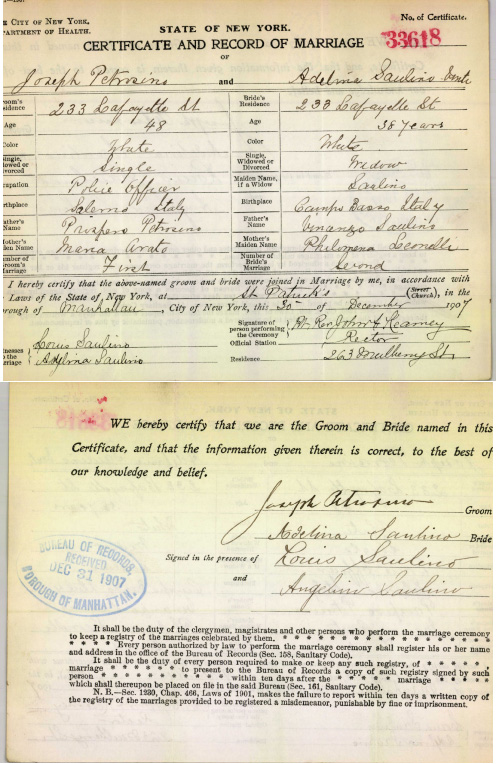 E CITY OF NEW YORK.
PARTMENT OF HEALTH.
No. of Certificate.
STATE OF NEW YORK.
CERTIFICATE AND RECORD OF MARRIAGE
33618
OF
Joseph Petrosino and Adelina Saulino
room's
sidence 233 Lafayette St Bride's
Residence 233 Lafayette St
Age 48 Age 38 years
Color White Color White
Single,
dowed or
vorced Single Single,
Widowed or
Divorced Widow
cupation Police Officer Maiden Name,
if a Widow Saulino
rthplace Salerno Italy Birthplace Campo Basso Italy
ather's
Name Prospero Petrosino Father's
Name Vinanzo Saulino
other's
den Name Maria Arato Mother's
Maiden Name Philomena
mber of
room's
arriage First Number of
Bride's
Marriage Second
I hereby certify that the above-named groom and bride were joined in Marriage by me, in accordance with
Laws of the State of New York, at St Patrick's (Street Church), in the
rough of Manhattan, City of New York, this 30 of December 1907
Signature of
person performing
the Ceremony Rt Rev John F Kearney
Official Station Rector
nesses
the
rriage Louis Saulino
Adelina Saulino
Residence 263 Mulberry St
WE hereby certify that we are the Groom and Bride named in this
Certificate, and that the information given therein is correct, to the best of
our knowledge and belief.
Joseph Petrosino Groom
Adelina Saulino Bride
Signed in the presence of Louis Saulino
and Angelino Saulino
BUREAU OF RECORDS,
RECEIVED
DEC 31 1907
BOROUGH OF MANHATTAN.
It shall be the duty of the clergymen, magistrates and other persons who perform the marriage ceremony
to keep a registry of the marriages celebrated by them. * * * * * * * * * * * * * * *
* * * * Every person authorized by law to perform the marriage ceremony shall register his or her name
and address in the office of the Bureau of Records (Sec. 158, Sanitary Code).
It shall be the duty of every person required to make or keep any such registry, of * * * * *,
marriage * * * * * * to present to the Bureau of Records a copy of such registry signed by such
person * * * * * * * * * within ten days after the * * * * * marriage * * * *
which shall thereupon be placed on file in the said Bureau (Sec. 161, Sanitary Code).
N. B.—Sec. 1239, Chap. 466, Laws of 1901, makes the failure to report within ten days a written copy of
the registry of the marriages provided to be registered a misdemeanor, punishable by fine or imprisonment.